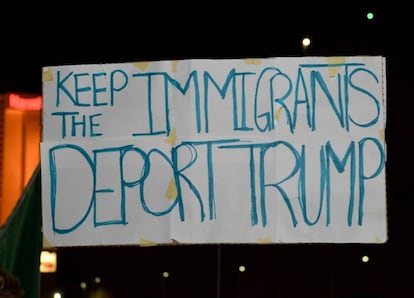 KEEP IMMIGRANTS
THE
DEPORT TRUMP